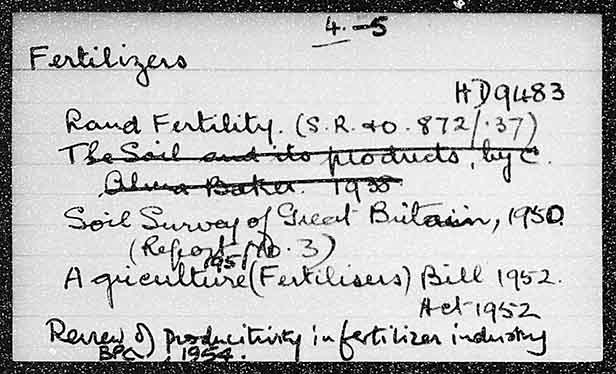 4.-5
Fertilizers
HD9483
Land Fertility. (S.R. & O. 872/.37)
The Soil and its products, by C.
Alma Baker. 1935
Soil Survey of Great Britain, 1950
(Report No. 3)
1951
Agriculture (Fertilisers) Bill 1952.
Act 1952
Review of productivity in fertilizer industry
BPC. 1954.